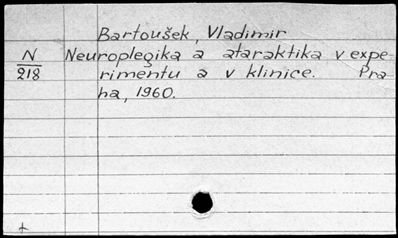 Bartoušek, Vladimir
N Neuroplegika a ataraktika v expe
218 rimentu a v klinice. Pra
ha, 1960.